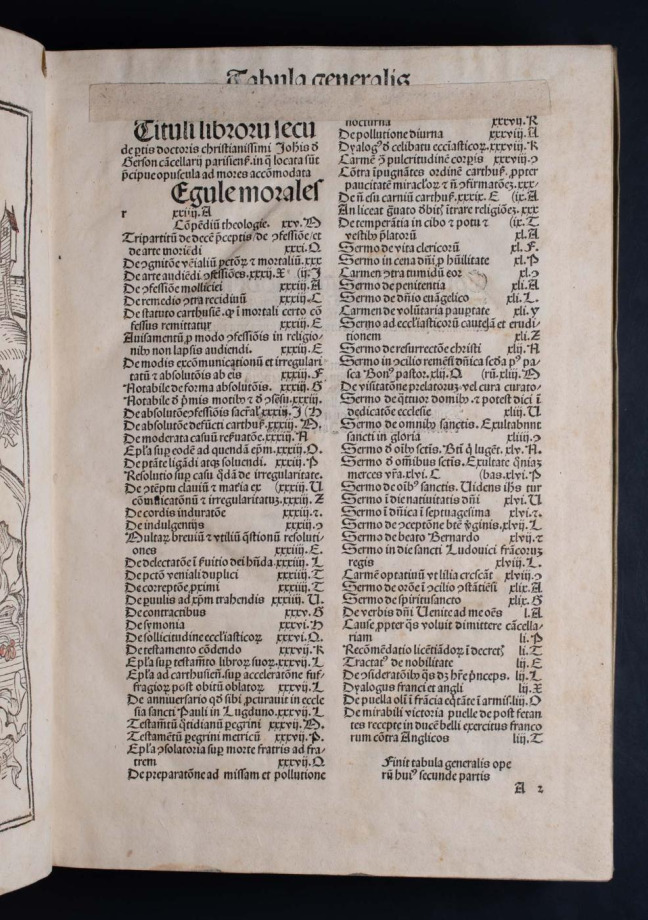 Tabula generalis
Tituli libroru secu
de ptis doctoris christianissimi Johis ð
Gerson cācellarij parisienš.in q̄ locata sūt
p̄cipue opuscula ad mores accōmodata
Egule morales
r xxiiij.A
Cōpēdiū theologie. xxv.M
Tripartitū de decē p̄ceptis/de ꝯfessiōe/et
de arte moriēdi xxxi.Q.
De ꝯgnitōe vēialiū pctōꝝ ⁊ mortaliū.xxx
De arte audiēdi ꝯfessiōes.xxxij.X (ij.J
De ꝯfessiōe molliciei xxxiij.A
De remedio ꝯtra recidiuū xxxiij.C
De statuto carthusiē.ꝙ i mortali certo cō
fessus remittatur xxxiij.E
Auisamentū ꝓ modo ꝯfessiōis in religio-
nibꝰ non lapsis audiendi. xxxiij.E
De modis excōmunicationū et irregulari
tatū ⁊ absolutiōis ab eis xxxiij.F
Notabile de forma absolutōis. xxxiij.G
Notabile ð p̄mis motibꝰ ⁊ ð ꝯsēsu.xxxiij.
De absolutōe ꝯfessiōis sacr̄al.xxxiij.J (H
De absolutōe defūcti carthuš.xxxiij.M.
De moderata casuū refuatōe.xxxiij.N
Epl̄a sup eodē ad quendā ep̄m.xxxiij.O.
De ptāte ligādi atqꝫ soluendi. xxxiij.P
Resolutio sup casu q̄dā de irregularitate.
De ꝯtēptu clauiū ⁊ mat̄ia ex (xxxiij.U
cōmūicatōnū ⁊ irregularitatuꝫ.xxxiij.Z
De cordis induratōe xxxiij.⁊.
De indulgentijs xxxiij.ꝯ
Multaꝝ breuiū ⁊ vtiliū q̄stionū resoluti-
ones xxxiiij.E.
De delectatōe ī f̄uitio dei hn̄da.xxxiiij.L
De pctō veniali duplici xxxiiij.T
De correptōe ꝓximi xxxiiij.T
De ꝑuulis ad xp̄m trahendis xxxiiij.U.
De contractibus xxxv.G
De symonia xxxvi.H
De sollicitudine eccl̄iasticoꝝ xxxvi.O.
De testamento cōdendo xxxvij.K
Epl̄a sup testam̄to libroꝝ suoꝝ.xxxvij.L
Epl̄a ad carthusien̄.sup acceleratōne suf-
fragioꝝ post obitū oblatoꝝ xxxvij.L
De anniuersario qð sibi ꝓcurauit in eccle
sia sancti Pauli in Lugduno.xxxvij.L
Testam̄tū q̄tidianū ꝑegrini xxxvij.M.
Testamētū ꝑegrini metricū xxxvij.P
Epl̄a ꝯsolatoria sup morte fratris ad fra-
trem xxxvij.Q.
De preparatōne ad missam et pollutione
nocturna xxxvij.R
De pollutione diurna xxxviij.A
Dyalogꝰ ð celibatu eccl̄iasticoꝝ.xxxviij.K
Carmē ꝓ pulcritudinē corꝑis xxxviij.ꝯ
Cōtra īpugnātes ordinē carthuš.ꝓpter
paucitatē miracl̓oꝝ ⁊ n̄ ꝯfirmatōeꝫ.xxx-
De n̄ esu carniū carthuš.xxxix.E (ix.A
An liceat g̃uato ðbitꝭ ītrare religiōeꝫ.xxx
De tempatīa in cibo ⁊ potu ⁊ (ix.T
vestibꝰ p̄latoꝝ xl.A
Sermo de vita clericoꝝ xl.F.
Sermo in cena dn̄i ꝓ hūilitate xl.P
Carmen ꝯtra tumidū eor xl.ꝯ
Sermo de penitentia xli.A
Sermo de dn̄io euāgelico xli.L.
Carmen de volūtaria pauꝑtate xli.y
Sermo ad eccl̄iasticorū cautelā et erudi-
tionem xli.Z
Sermo de resurrectōe christi xlij.A
Sermo in ꝯcilio remēs̄i dn̄ica scða pꝰ pa-
sca Bonꝰ pastor.xlij.Q. (rū.xliij.M
De visitatōne prelatorum.vel cura curato-
Sermo de q̄ttuor domibꝰ.⁊ potest dici ī
dedicatōe ecclesie xliij.U
Sermo de omnibꝰ sanctis.Exultabnnt
sancti in gloria xliiij.ꝯ
Sermo ð oībꝰ sctis.Bt̄i q̄ lugēt.xlv.A.
Sermo ð om̄ibus sctis.Exultate qm̄iaꝫ
merces vr̄a.xlvi.C (bas.xlvi.P
Sermo de oībꝰ sanctis.Uidens ih̄s tur
Sermo ī die natiuitatis dn̄i xlvi.U
Sermo ī dn̄ica ī septuagesima xlvi.⁊.
Sermo de ꝯceptōne bt̄e v̄ginis.xlvij.L
Sermo de beato Bernardo xlvij.⁊
Sermo in die sancti Ludouici frācoruꝫ
regis xlviij.L.
Carmē optatiuū vt lilia crescāt xlviij.ꝯ
Sermo de orōe ī ꝯcilio ꝯstātiēs̄i xlix.A
Sermo de spiritusancto xlix.G
De verbis dn̄i Uenite ad me oēs l.A
Cause ꝓpter q̄s voluit dimittere cācella-
riam li.P
Recōmēdatio licētiādoꝝ ī decretꝭ li.T
Tractatꝰ de nobilitate lij.E
De ꝯsideratōibꝰ q̄s dꝫ hr̄e p̄nceps. lij.L
Dyalogus franci et angli lij.X
De puella oli ī frācia eq̄tāte ī armis.liij.O
De mirabili victoria puelle de post fetan
tes recepte in ducē belli exercitus franco
rum cōtra Anglicos liij.T
Finit tabula generalis ope
rū huiꝰ secunde partis
A 2